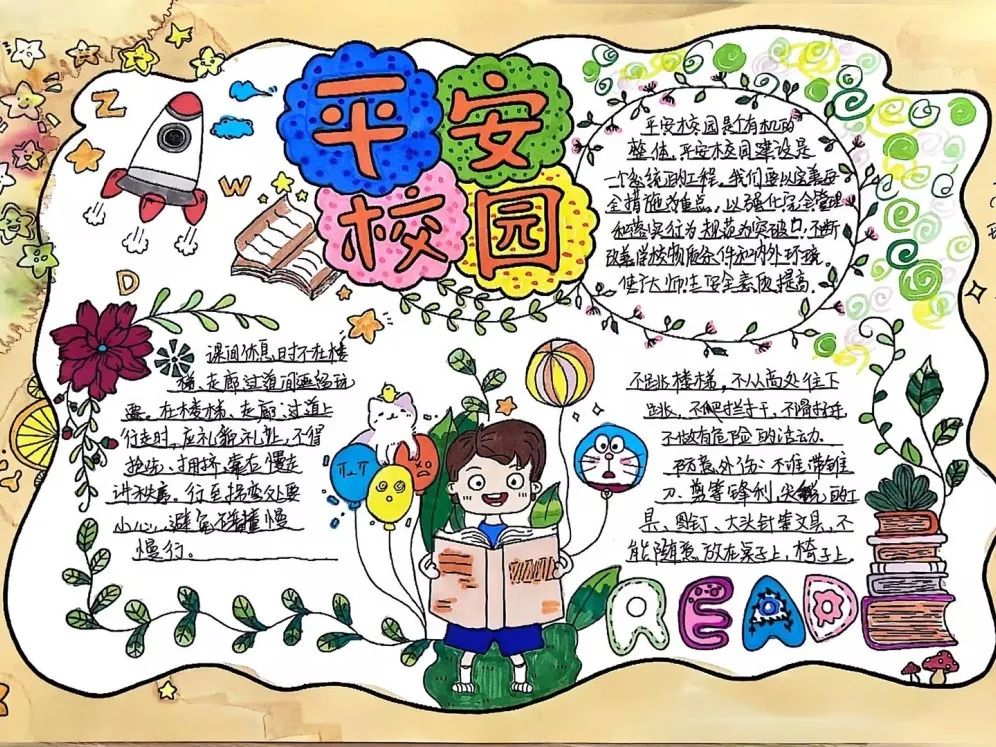 平安
校园
Z
W
D
平安校园是个有机的
整体,平安校园建设是
一个系统的工程。我们要以完善安
全措施为难点,以强化安全管理
和落实行为规范为突破口,不断
改善学校物质条件和内外环境。
使广大师生安全素质提高。
课间休息时不在楼
梯、走廊过道间逗留玩
耍。在楼梯、走廊过道上
行走时,应礼貌礼让,不得
抢先、拥挤,靠右慢走
讲秩序。行至拐弯处要
小心,避免碰撞慢
慢行。
不跳楼梯,不从高处往下
跳,不爬栏干,不滑扶手,
不做有危险的活动.
防意外伤:不准带锥
刀、剪等锋利,尖锐的工
具、图钉、大头针等文具,不
能随意放在桌子上,椅子上.
READ